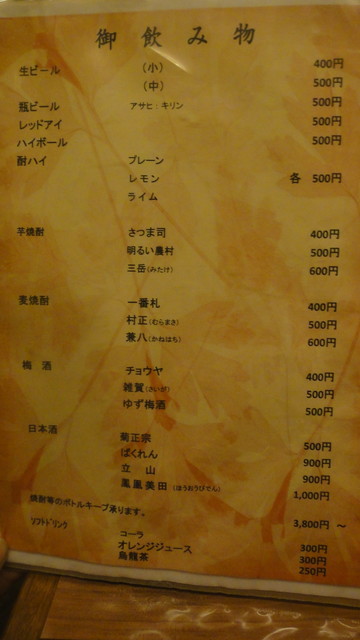 御飲み物
生ビール （小） 400円
（中） 500円
瓶ビール アサヒ：キリン 500円
レッドアイ 500円
ハイボール 500円
酎ハイ プレーン
レモン 各 500円
ライム
芋焼酎 さつま司 400円
明るい農村 500円
三岳（みたけ） 600円
麦焼酎 一番札 400円
村正（むらまさ） 500円
兼八（かねはち） 600円
梅酒 チョウヤ 400円
雑賀（さいが） 500円
ゆず梅酒 500円
日本酒 菊正宗 500円
ばくれん 900円
立山 900円
鳳凰美田（ほうおうびでん） 1,000円
焼酎等のボトルキープ承ります。 3,800円 〜
ｿﾌﾄﾄﾞﾘﾝｸ コーラ 300円
オレンジジュース 300円
烏龍茶 250円